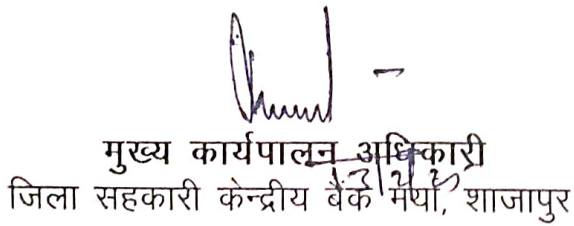 मुख्य कार्यपालन अधिकारी
जिला सहकारी केन्द्रीय बैंक मर्या, शाजापुर